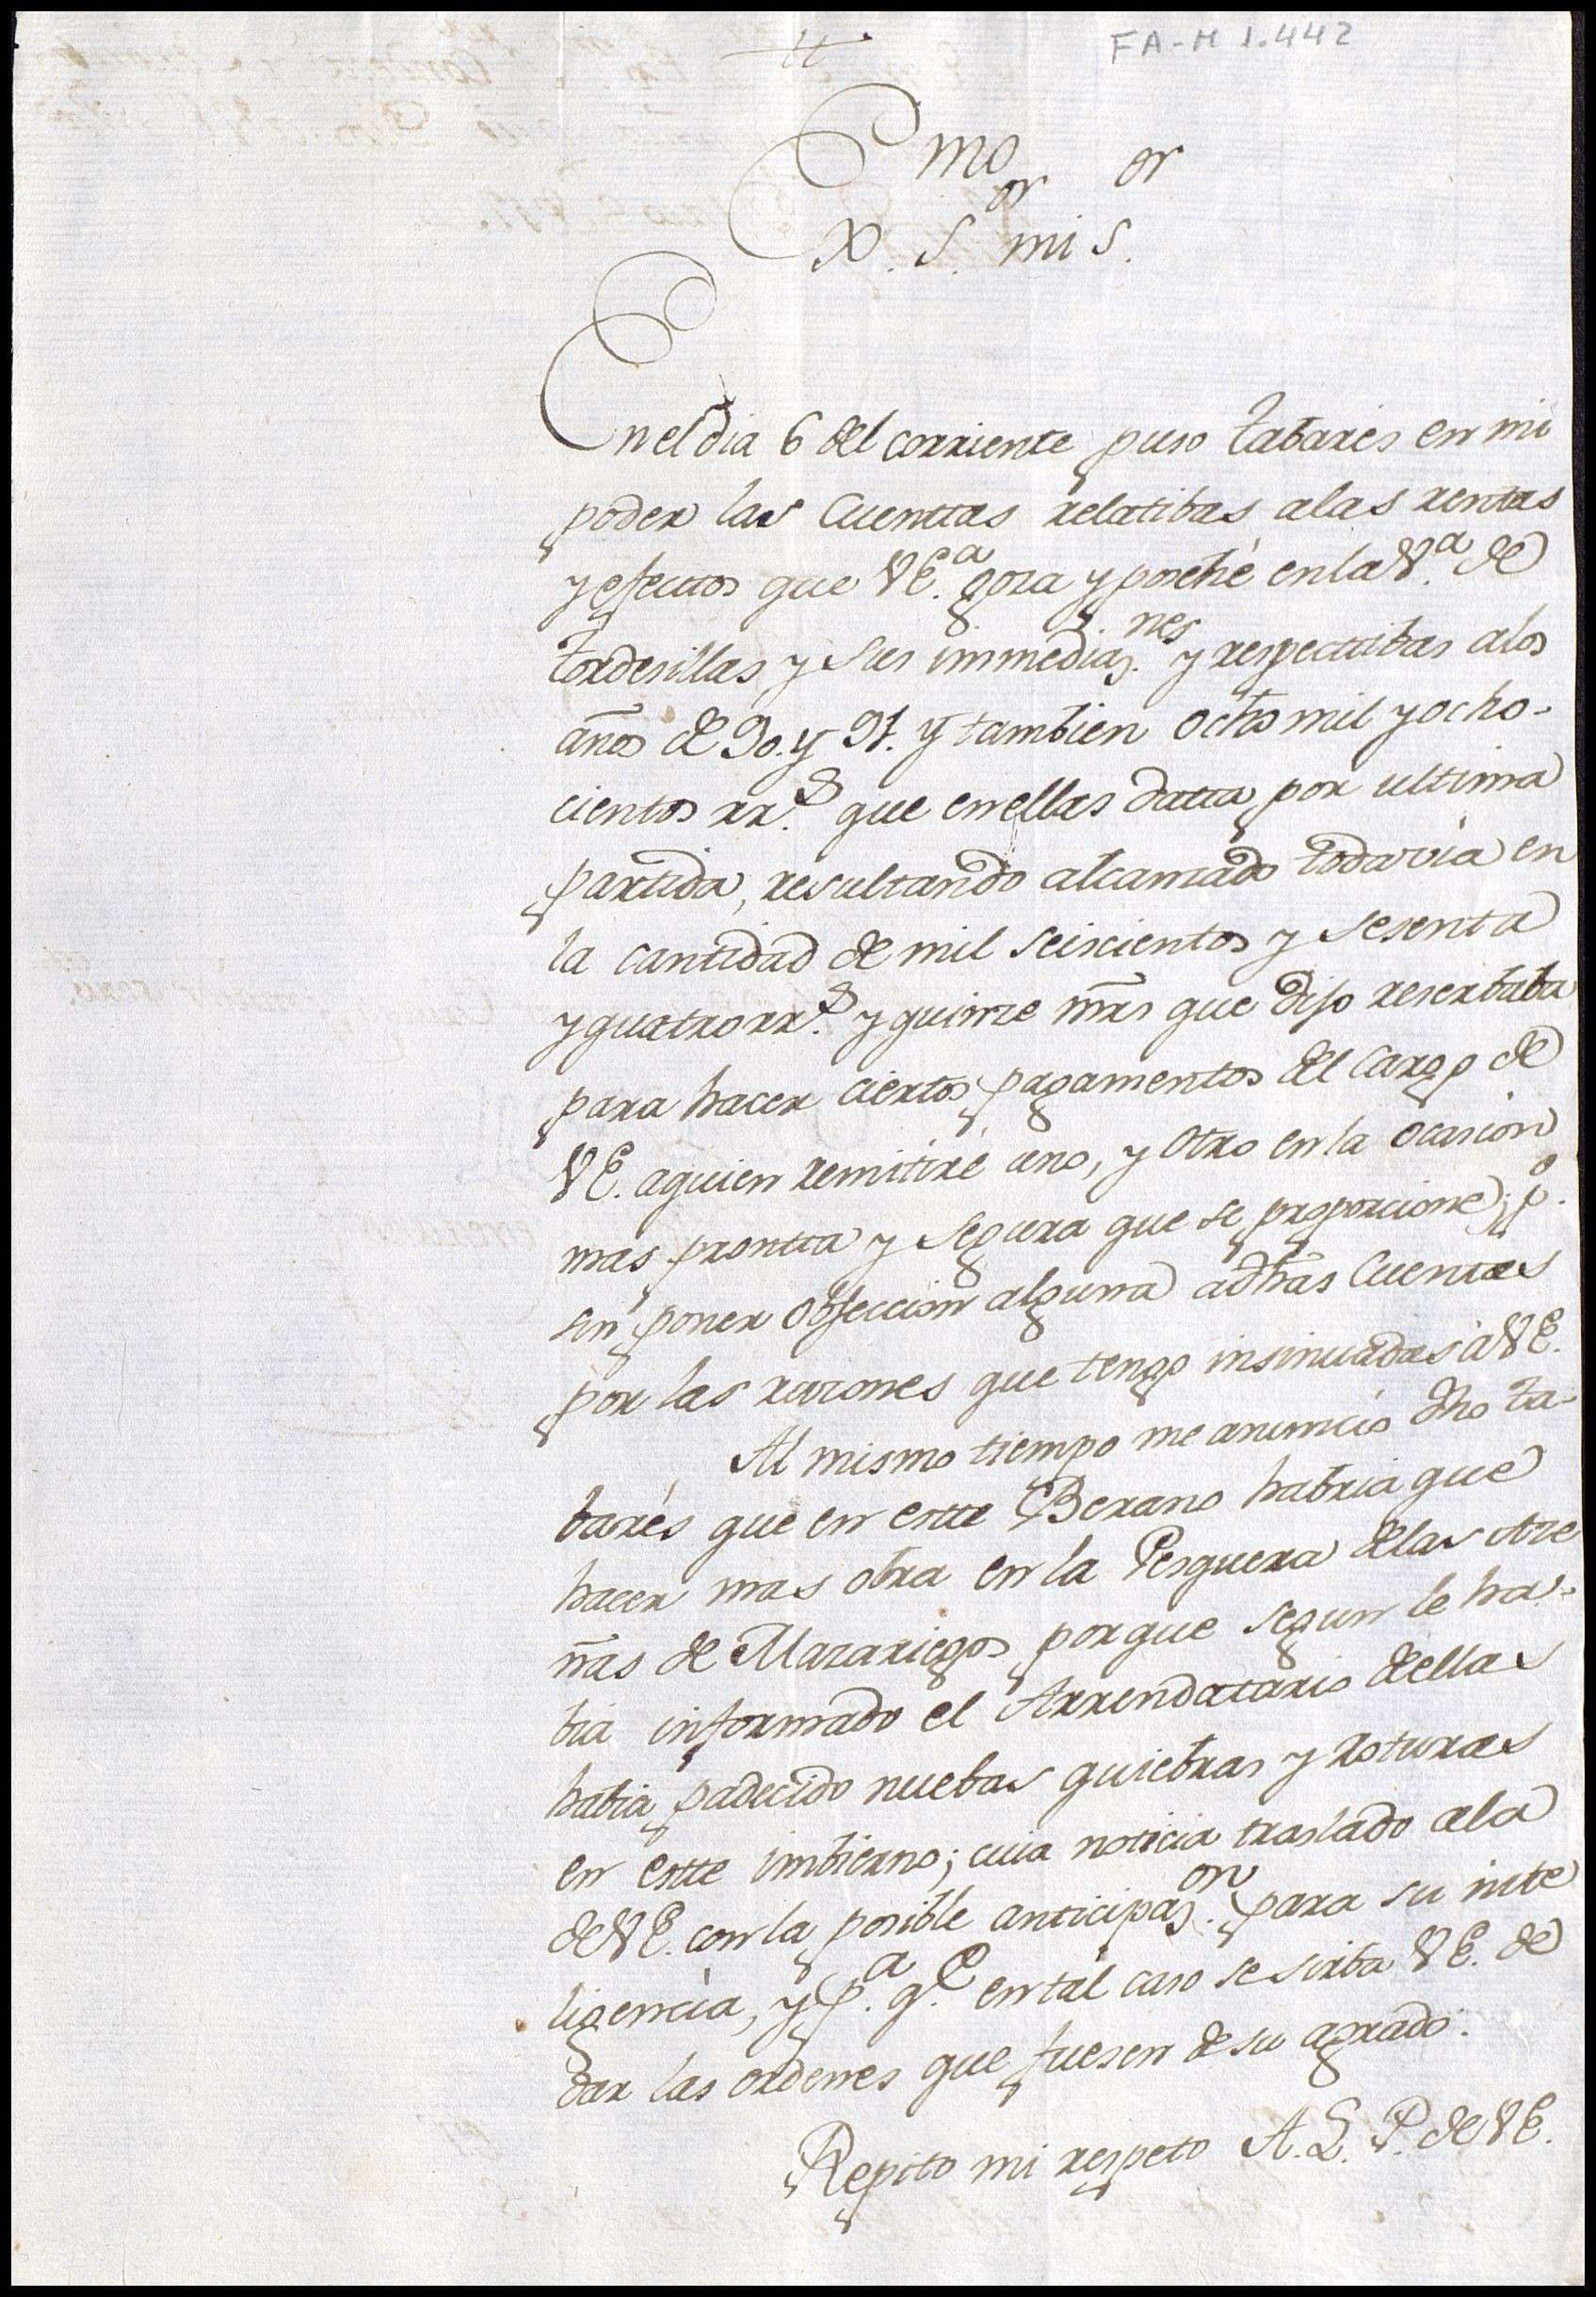 FA-M 1.442
Exmo. Sor. mi Sor.
En el dia 6 del corriente puso Tabarés en mi
poder las Cuenttas relatibas a las rentas
y efecttos que VE.a goza y pose hé en la V.a de
tordesillas y sus immediaz.nes y respecttibas a los
años de 90. y 91. y tambien ocho mil y ocho-
cientos rr.s que en ellas datta por ultima
partida, resultando alcanzado todavia en
la cantidad de mil seiscientos y sesenta
y quatro rr.s y quinze mrs que dijo reserbaba
para hacer ciertos pagamentos del Cargo de
VE. a quien remitiré uno, y otro en la ocasion
mas prontta y segura que se proporcione; p.o
sin poner objeccion alguna a dhas Cuenttas
por las razones que tengo insinuadas à VE.
Al mismo tiempo me anunció dho Ta-
barés que en estte Berano habria que
hacer mas obra en la Pesquera de las Aze
ñas de Mazariegos porque segun le ha-
bia informado el Arrendatario de ellas
habia padecido nuebas quiebras y Roturas
en estte imbierno; cuia noticia traslado a la
de VE. con la posible anticipaz.on para su inte
ligencia, y p.a q.e en tal caso se sirba VE. de
dar las ordenes que fuesen de su agrado.
Repito mi respeto A. L. P. de VE.